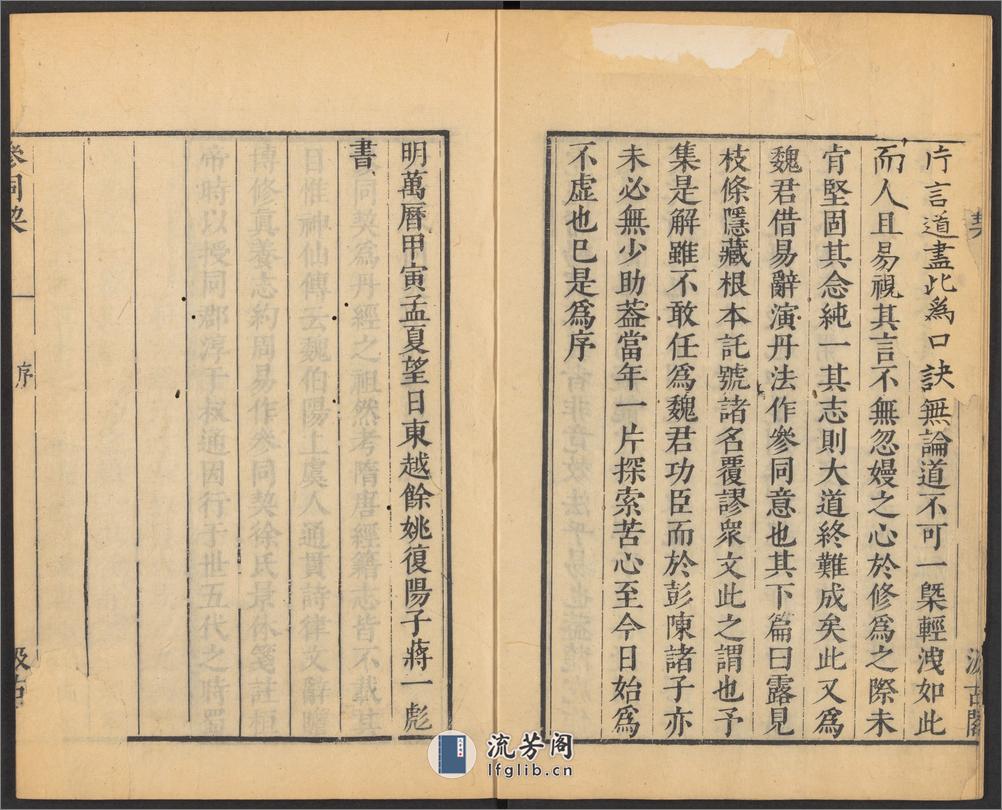 片言道盡此爲口訣無論道不可一槩輕洩如此
而人且易視其言不無忽嫚之心於修爲之際未
肻堅固其念純一其志則大道終難成矣此又爲
魏君借易辭演丹法作參同意也其下篇曰露見
枝條隱藏根本託號諸名覆謬衆文此之謂也予
集是解雖不敢任爲魏君功臣而於彭陳諸子亦
未必無少助葢當年一片探索苦心至今日始爲
不虛也巳是爲序
明萬曆甲寅孟夏望日東越餘姚復陽子蔣一彪
書
參同契
序
汲古
契
汲古閣
流芳阁
lfglib.cn